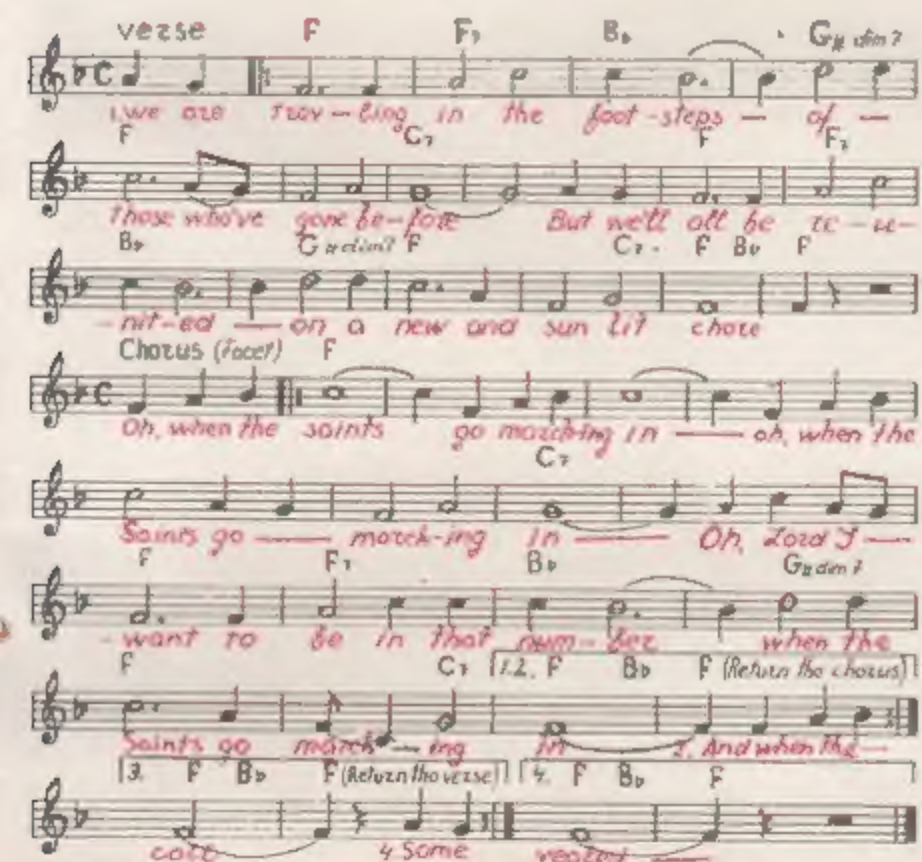 verse F F7 Bb G# dim7
1. we are trav-ling in the foot-steps — of —
F C7 F F7
Those who've gone be-fore But we'll all be re-u-
Bb G# dim7 F C7 F Bb F
-nit-ed — on a new and sun lit chore
Chorus (Facet) F
Oh, when the saints go march-ing in — oh, when the
C7
Saints go — march-ing in — Oh, Lord I —
F F7 Bb G# dim7
-want to be in that num-ber when the
F C7 1.2. F Bb F (Return tho chorus)
Saints go march — ing in 2. And when the —
3. F Bb F (Return tho verse) 4. F Bb F
call 4 Some